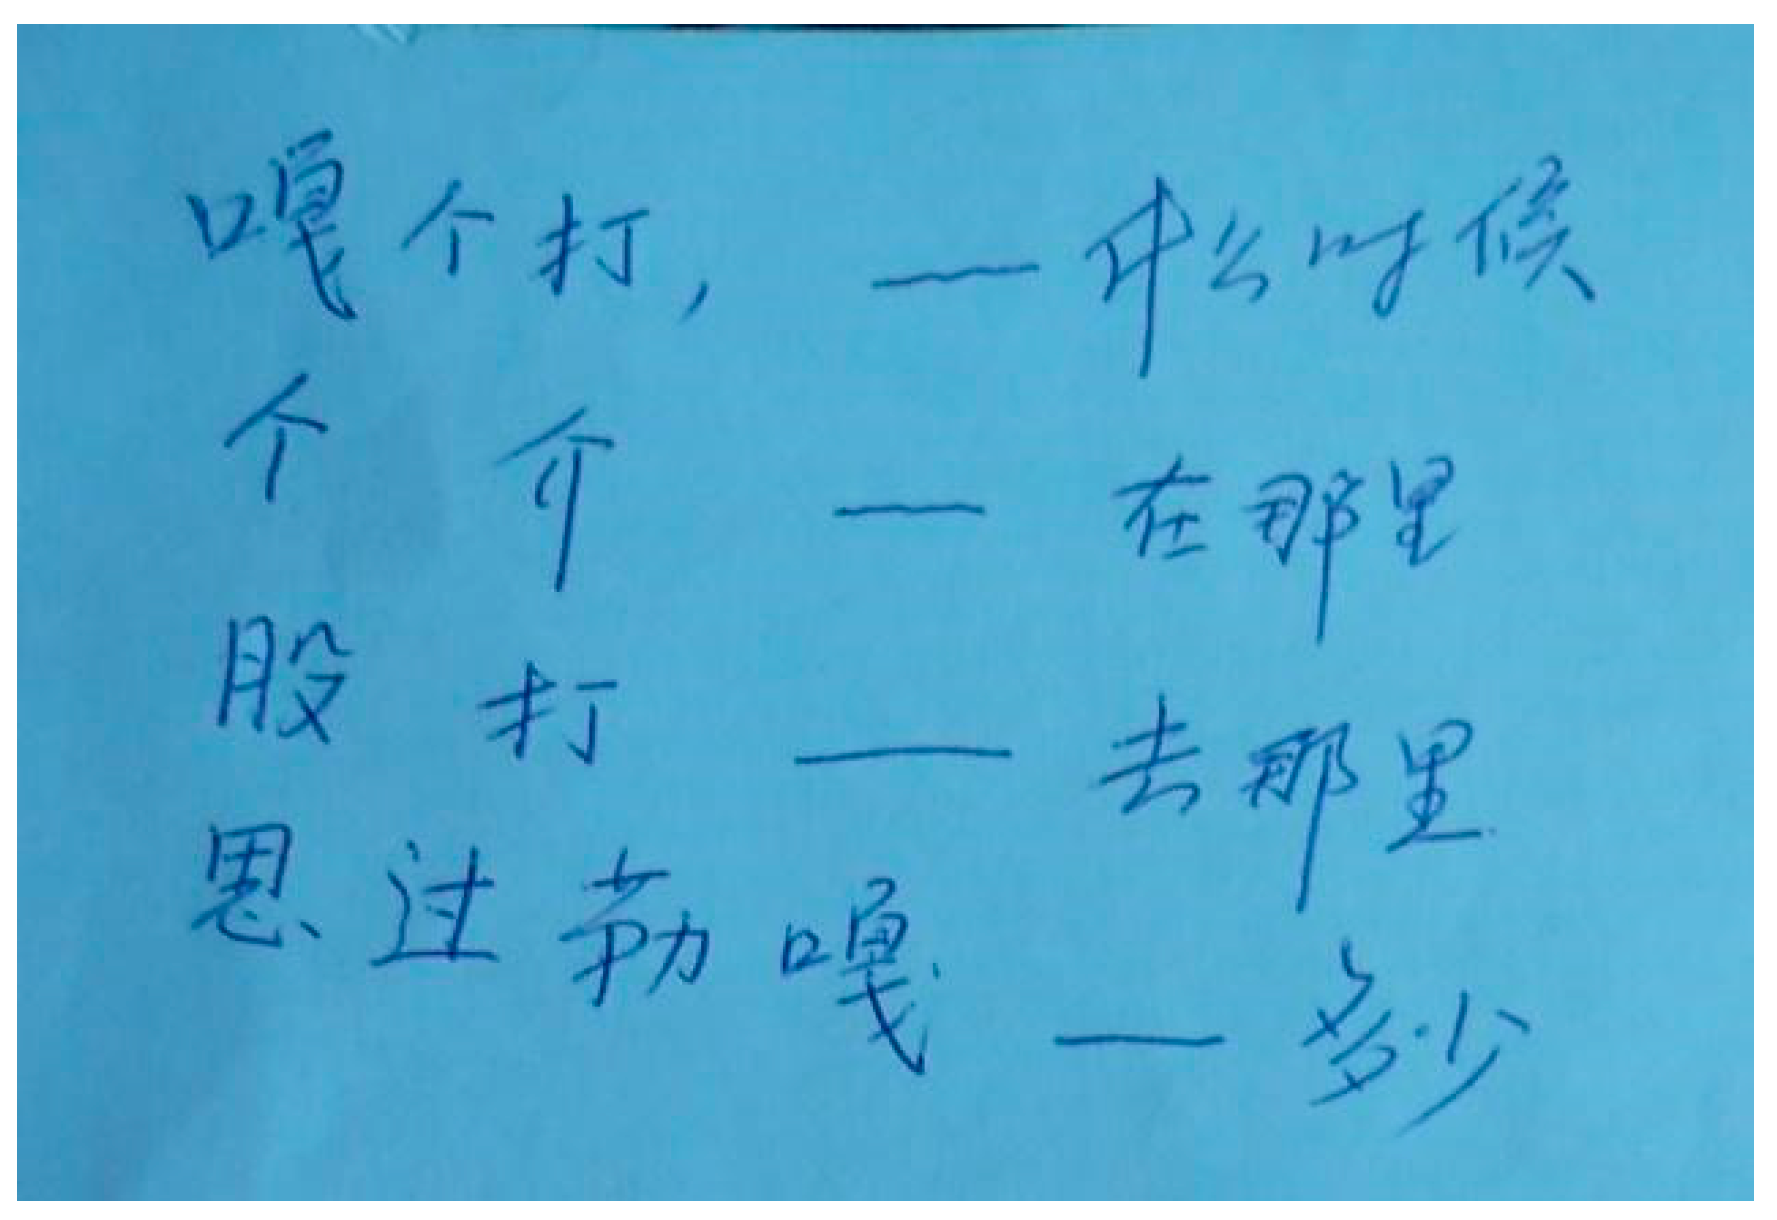 嘎个打，—什么时候
个介—在那里
股打—去那里
恩过勒嘎—多少